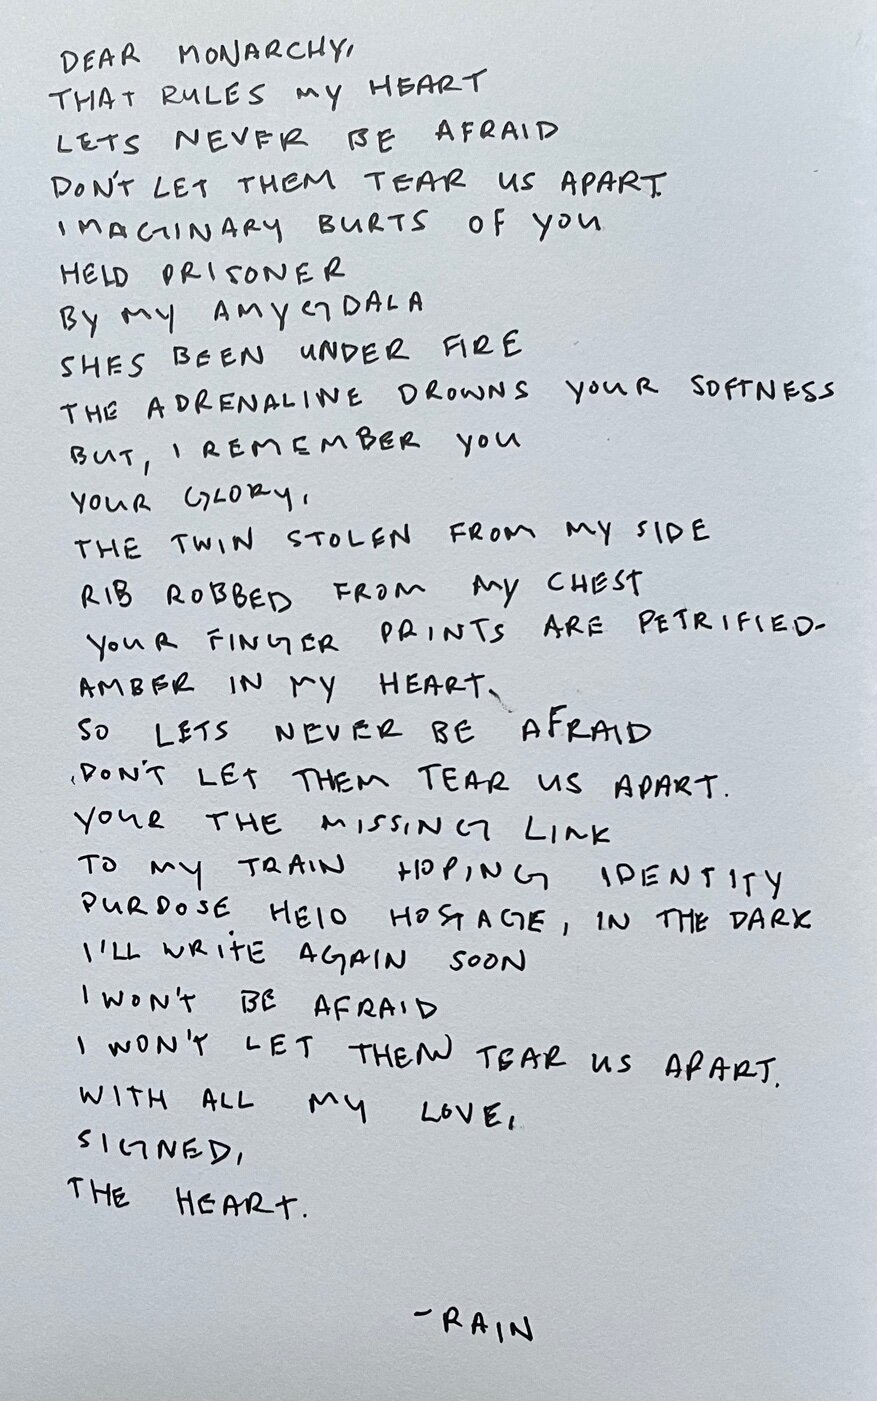 DEAR MONARCHY,
THAT RULES MY HEART
LETS NEVER BE AFRAID
DON'T LET THEM TEAR US APART.
IMAGINARY BURTS OF YOU
HELD PRISONER
BY MY AMYGDALA
SHES BEEN UNDER FIRE
THE ADRENALINE DROWNS YOUR SOFTNESS
BUT, I REMEMBER YOU
YOUR GLORY,
THE TWIN STOLEN FROM MY SIDE
RIB ROBBED FROM MY CHEST
YOUR FINGER PRINTS ARE PETRIFIED-
AMBER IN MY HEART.
SO LETS NEVER BE AFRAID
DON'T LET THEM TEAR US APART.
YOUR THE MISSING LINK
TO MY TRAIN HOPING IDENTITY
PURPOSE HELD HOSTAGE, IN THE DARK
I'LL WRITE AGAIN SOON
I WON'T BE AFRAID
I WON'T LET THEM TEAR US APART.
WITH ALL MY LOVE,
SIGNED,
THE HEART.
-RAIN